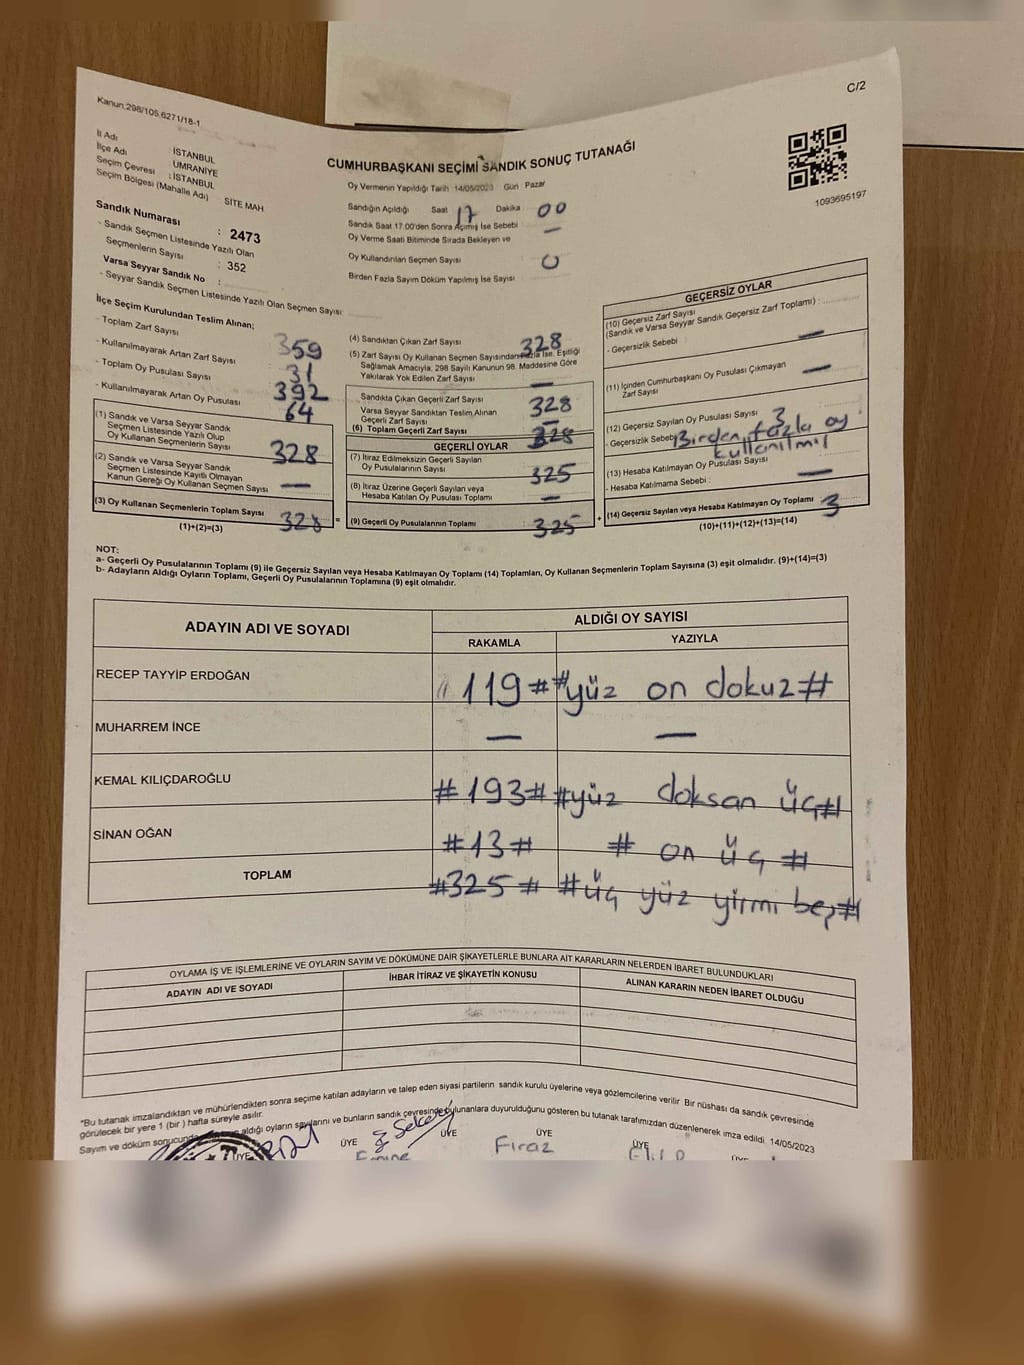 C/2
Kanun.298/105,6271/18-1
İl Adı : İSTANBUL
İlçe Adı : ÜMRANİYE
Seçim Çevresi : İSTANBUL
Seçim Bölgesi (Mahalle Adı) SİTE MAH
Sandık Numarası : 2473
- Sandık Seçmen Listesinde Yazılı Olan
Seçmenlerin Sayısı : 352
Varsa Seyyar Sandık No :
- Seyyar Sandık Seçmen Listesinde Yazılı Olan Seçmen Sayısı:
CUMHURBAŞKANI SEÇİMİ SANDIK SONUÇ TUTANAĞI
Oy Vermenin Yapıldığı Tarih 14/05/2023 Gün Pazar
Sandığın Açıldığı Saat 17 Dakika 00
Sandık Saat 17.00'den Sonra Açımış İse Sebebi —
Oy Verme Saati Bitiminde Sırada Bekleyen ve
Oy Kullandırılan Seçmen Sayısı 0
Birden Fazla Sayım Döküm Yapılmış İse Sayısı
1093695197
İlçe Seçim Kurulundan Teslim Alınan;
- Toplam Zarf Sayısı 359
- Kullanılmayarak Artan Zarf Sayısı 31
- Toplam Oy Pusulası Sayısı 392
- Kullanılmayarak Artan Oy Pusulası 64
(1) Sandık ve Varsa Seyyar Sandık
Seçmen Listesinde Yazılı Olup
Oy Kullanan Seçmenlerin Sayısı 328
(2) Sandık ve Varsa Seyyar Sandık
Seçmen Listesinde Kayıtlı Olmayan
Kanun Gereği Oy Kullanan Seçmen Sayısı —
(3) Oy Kullanan Seçmenlerin Toplam Sayısı 328 =
(1)+(2)=(3)
(4) Sandıktan Çıkan Zarf Sayısı 328
(5) Zarf Sayısı Oy Kullanan Seçmen Sayısından Fazla İse, Eşitliği
Sağlamak Amacıyla, 298 Sayılı Kanunun 98. Maddesine Göre
Yakılarak Yok Edilen Zarf Sayısı —
Sandıkta Çıkan Geçerli Zarf Sayısı 328
Varsa Seyyar Sandıktan Teslim Alınan
Geçerli Zarf Sayısı —
(6) Toplam Geçerli Zarf Sayısı 328
GEÇERLİ OYLAR
(7) İtiraz Edilmeksizin Geçerli Sayılan
Oy Pusulalarının Sayısı 325
(8) İtiraz Üzerine Geçerli Sayılan veya
Hesaba Katılan Oy Pusulası Toplamı —
(9) Geçerli Oy Pusulalarının Toplamı : 325 +
GEÇERSİZ OYLAR
(10) Geçersiz Zarf Sayısı
(Sandık ve Varsa Seyyar Sandık Geçersiz Zarf Toplamı) :
- Geçersizlik Sebebi : —
(11) İçinden Cumhurbaşkanı Oy Pusulası Çıkmayan
Zarf Sayısı —
(12) Geçersiz Sayılan Oy Pusulası Sayısı 3
- Geçersizlik Sebebi Birden fazla oy
kullanılmış
(13) Hesaba Katılmayan Oy Pusulası Sayısı —
- Hesaba Katılmama Sebebi :
(14) Geçersiz Sayılan veya Hesaba Katılmayan Oy Toplamı 3
(10)+(11)+(12)+(13)=(14)
NOT:
a- Geçerli Oy Pusulalarının Toplamı (9) ile Geçersiz Sayılan veya Hesaba Katılmayan Oy Toplamı (14) Toplamları, Oy Kullanan Seçmenlerin Toplam Sayısına (3) eşit olmalıdır. (9)+(14)=(3)
b- Adayların Aldığı Oyların Toplamı, Geçerli Oy Pusulalarının Toplamına (9) eşit olmalıdır.
ADAYIN ADI VE SOYADI ALDIĞI OY SAYISI
RAKAMLA YAZIYLA
RECEP TAYYİP ERDOĞAN 119# #yüz on dokuz#
MUHARREM İNCE — —
KEMAL KILIÇDAROĞLU #193# #yüz doksan üç#
SİNAN OĞAN #13# # on üç #
TOPLAM #325# #üç yüz yirmi beş#
OYLAMA İŞ VE İŞLEMLERİNE VE OYLARIN SAYIM VE DÖKÜMÜNE DAİR ŞİKAYETLERLE BUNLARA AİT KARARLARIN NELERDEN İBARET BULUNDUKLARI
ADAYIN ADI VE SOYADI İHBAR İTİRAZ VE ŞİKAYETİN KONUSU ALINAN KARARIN NEDEN İBARET OLDUĞU
*Bu tutanak imzalandıktan ve mühürlendikten sonra seçime katılan adayların ve talep eden siyasi partilerin sandık kurulu üyelerine veya gözlemcilerine verilir. Bir nüshası da sandık çevresinde
görülecek bir yere 1 (bir ) hafta süreyle asılır.
Sayım ve döküm sonucunda aldığı oyların sayılarını ve bunların sandık çevresinde bulunanlara duyurulduğunu gösteren bu tutanak tarafımızdan düzenlenerek imza edildi. 14/05/2023
ÜYE ÜYE ÜYE ÜYE ÜYE
Emine Firaz